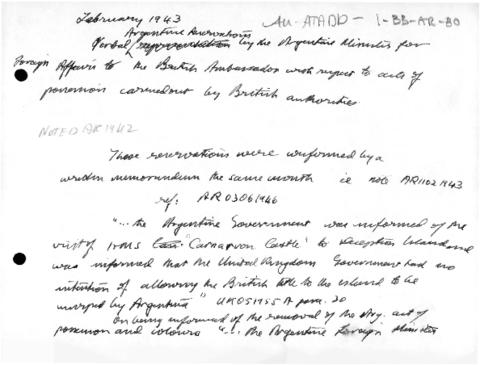 February 1943
AU-ATADD-1-BB-AR-80
Argentine Reservations
Verbal representation by the Argentine Minister for
Foreign Affairs to the British Ambassador with respect to acts of
possession carried out by British authorities
NOTED AR 1942
These reservations were confirmed by a
written memorandum the same month ie note AR1102 1943
ref: AR03061946
"... the Argentine Government was informed of the
visit of HMS "Carnarvon Castle" to Deception Island and
was informed that the United Kingdom Government had no
intention of allowing the British title to the island to be
usurped by Argentina" UK051955A para. 20
On being informed of the removal of the Arg. act of
possession and colours "... the Argentine Foreign Minister